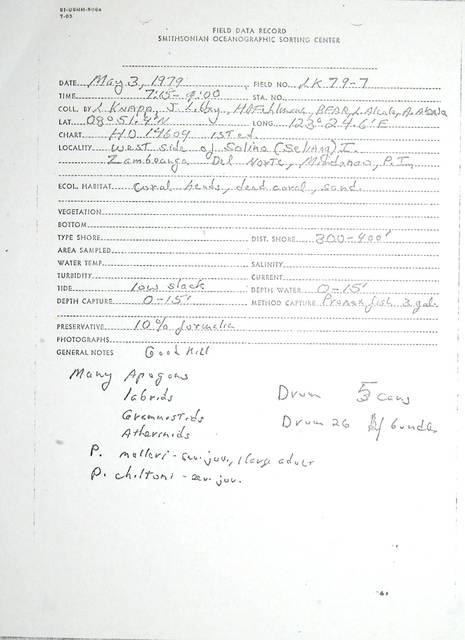 SI-USNM-500A
7-63
FIELD DATA RECORD
SMITHSONIAN OCEANOGRAPHIC SORTING CENTER
DATE May 3, 1979 FIELD NO. LK 79-7
TIME 7:15-9:00 STA. NO.
COLL. BY L. Knapp, J. Libby, L. Alcala,
LAT. 08° 51.4'N LONG. 123° 24.6'E
CHART HO 14604 1st ed.
LOCALITY West side of Solino (Selinog) I.
Zamboanga Del Norte, Mindanao, P.I.
ECOL. HABITAT coral heads, dead coral, sand.
VEGETATION
BOTTOM
TYPE SHORE DIST. SHORE 300-400'
AREA SAMPLED
WATER TEMP. SALINITY
TURBIDITY CURRENT
TIDE low slack DEPTH WATER 0-15'
DEPTH CAPTURE 0-15' METHOD CAPTURE Pronoxfish 3 gal.
PRESERVATIVE 10% formalin
PHOTOGRAPHS
GENERAL NOTES Good Kill
Many Apogons
labrids Drum 5 cans
Grammistids Drum 26 bundles
Atherinids
P. melleri - sev. juv., 1 large adult
P. chiltoni - sev. juv.